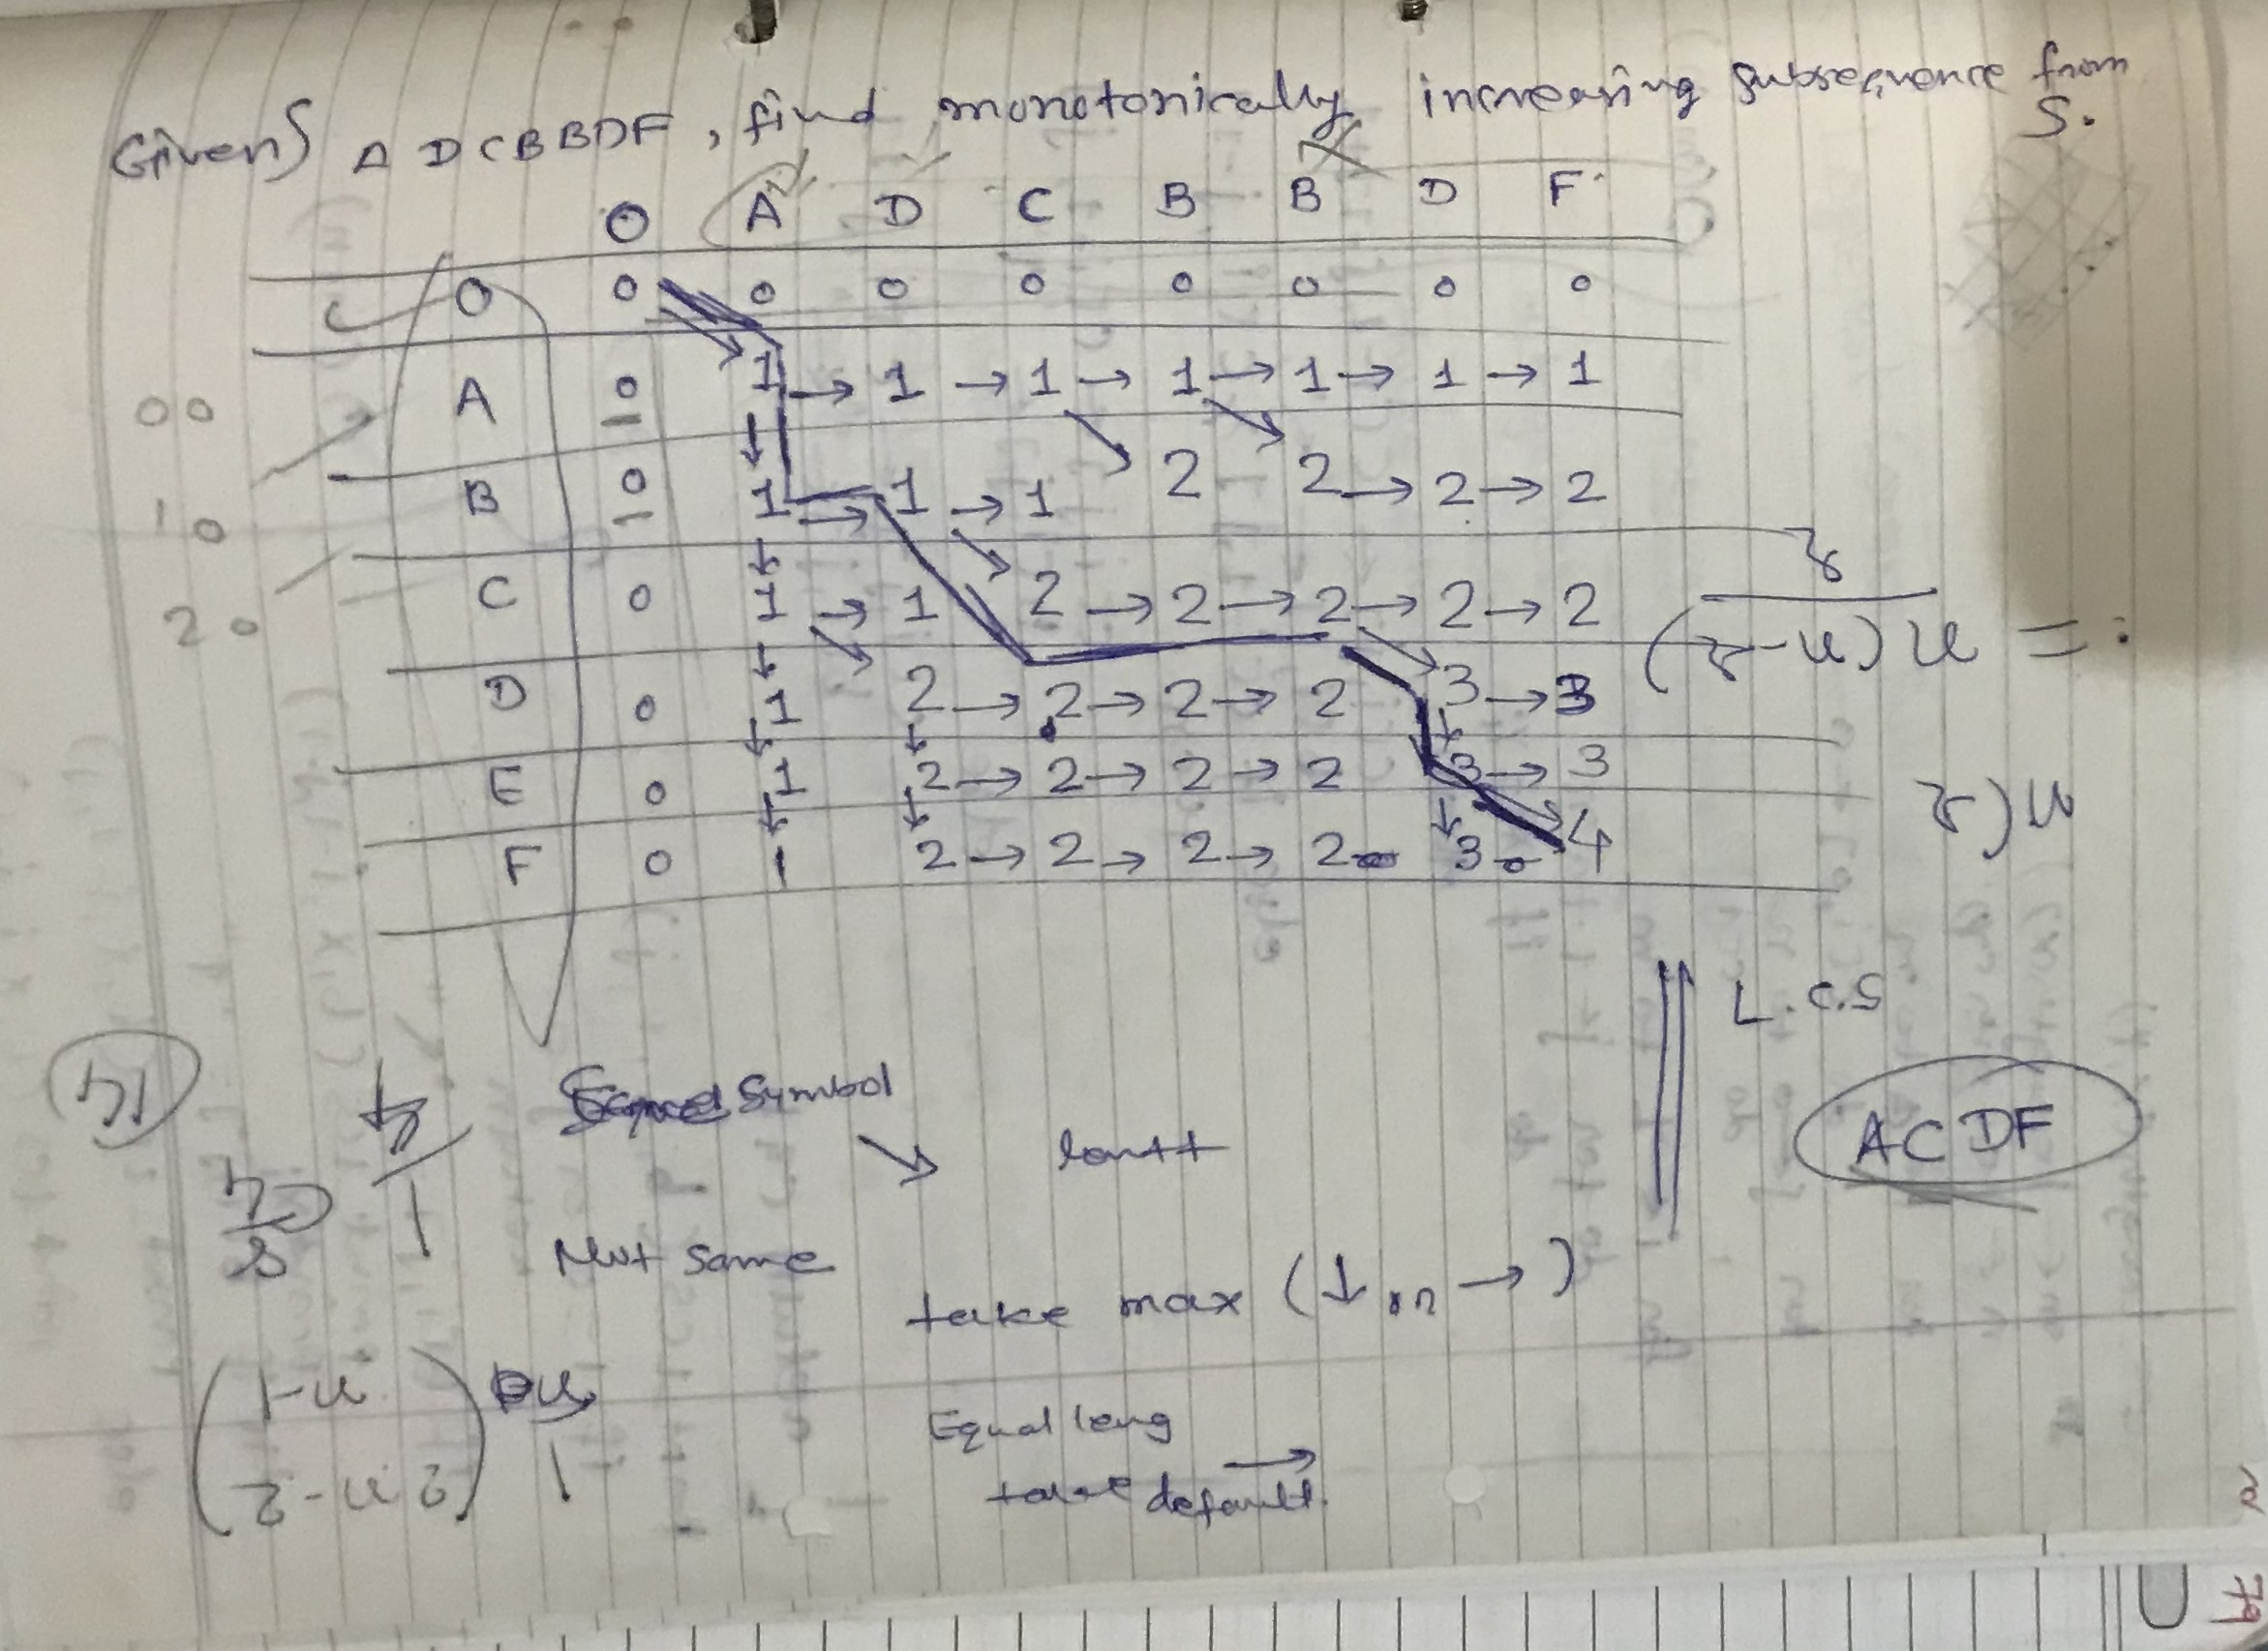 Given S ADCBBDF, find monotonically increasing subsequence from S.
O A D C B B D F
O 0 0 0 0 0 0 0 0
00 A 0 1 → 1 → 1 → 1 → 1 → 1 → 1
10 B 0 1 → 1 → 1 2 2 → 2 → 2
20 C 0 1 → 1 2 → 2 → 2 → 2 → 2
D 0 1 2 → 2 → 2 → 2 3 → 3
E 0 1 2 → 2 → 2 → 2 3 → 3
F 0 1 2 → 2 → 2 → 2 3 4
= n(n-2)
2
L.C.S
ACDF
Symbol
↘
Not same
take max (↓ or →)
Equal leng
take default →
(2n-2
n-1)
79